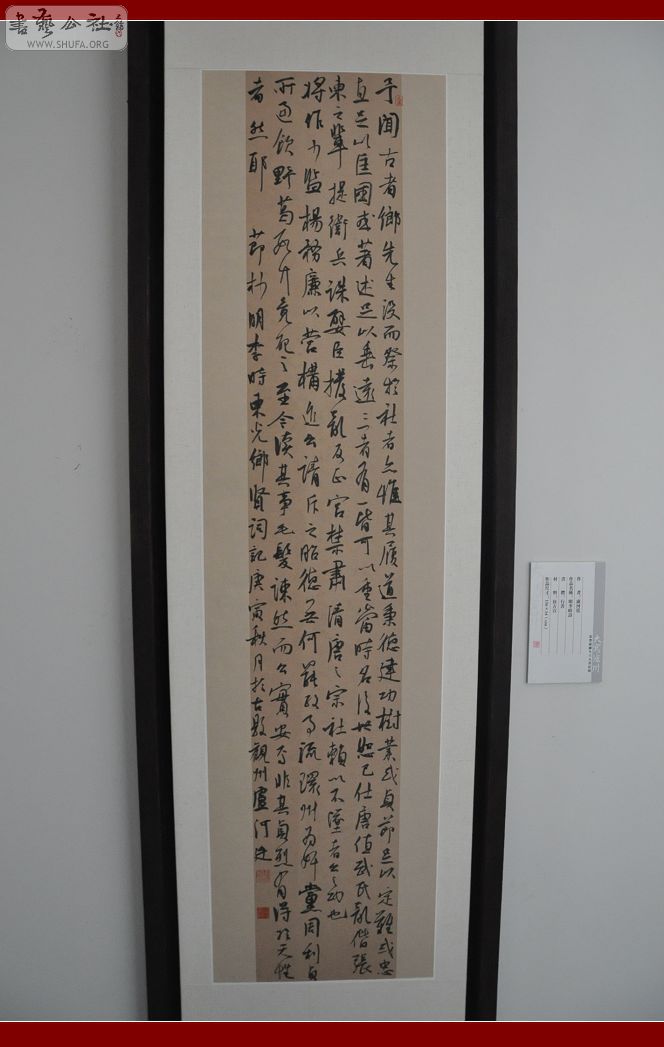 書藝公社
WWW.SHUFA.ORG
予聞古者鄉先生没而祭於社者亦惟其履道秉德建功樹業或貞節足以定難或忠
直足以匡國或著述足以垂遠三者有一皆可以重當時名後世恕己仕唐值武氏亂偕張
東之輩提衛兵誅嬖臣撥亂反正宮禁肅清唐之宗社賴以不墜者公之功也
將作少監楊務廉以營構進公請斥之昭德無何罷政事流環州為奸黨周利貞
所逼飲野葛數升竟死之至今讀其事毛髮竦然而公實安焉非其貞烈有得於天性
者然耶 節抄明李時東光鄉賢祠記庚寅秋月於古縣觀州盧河廷